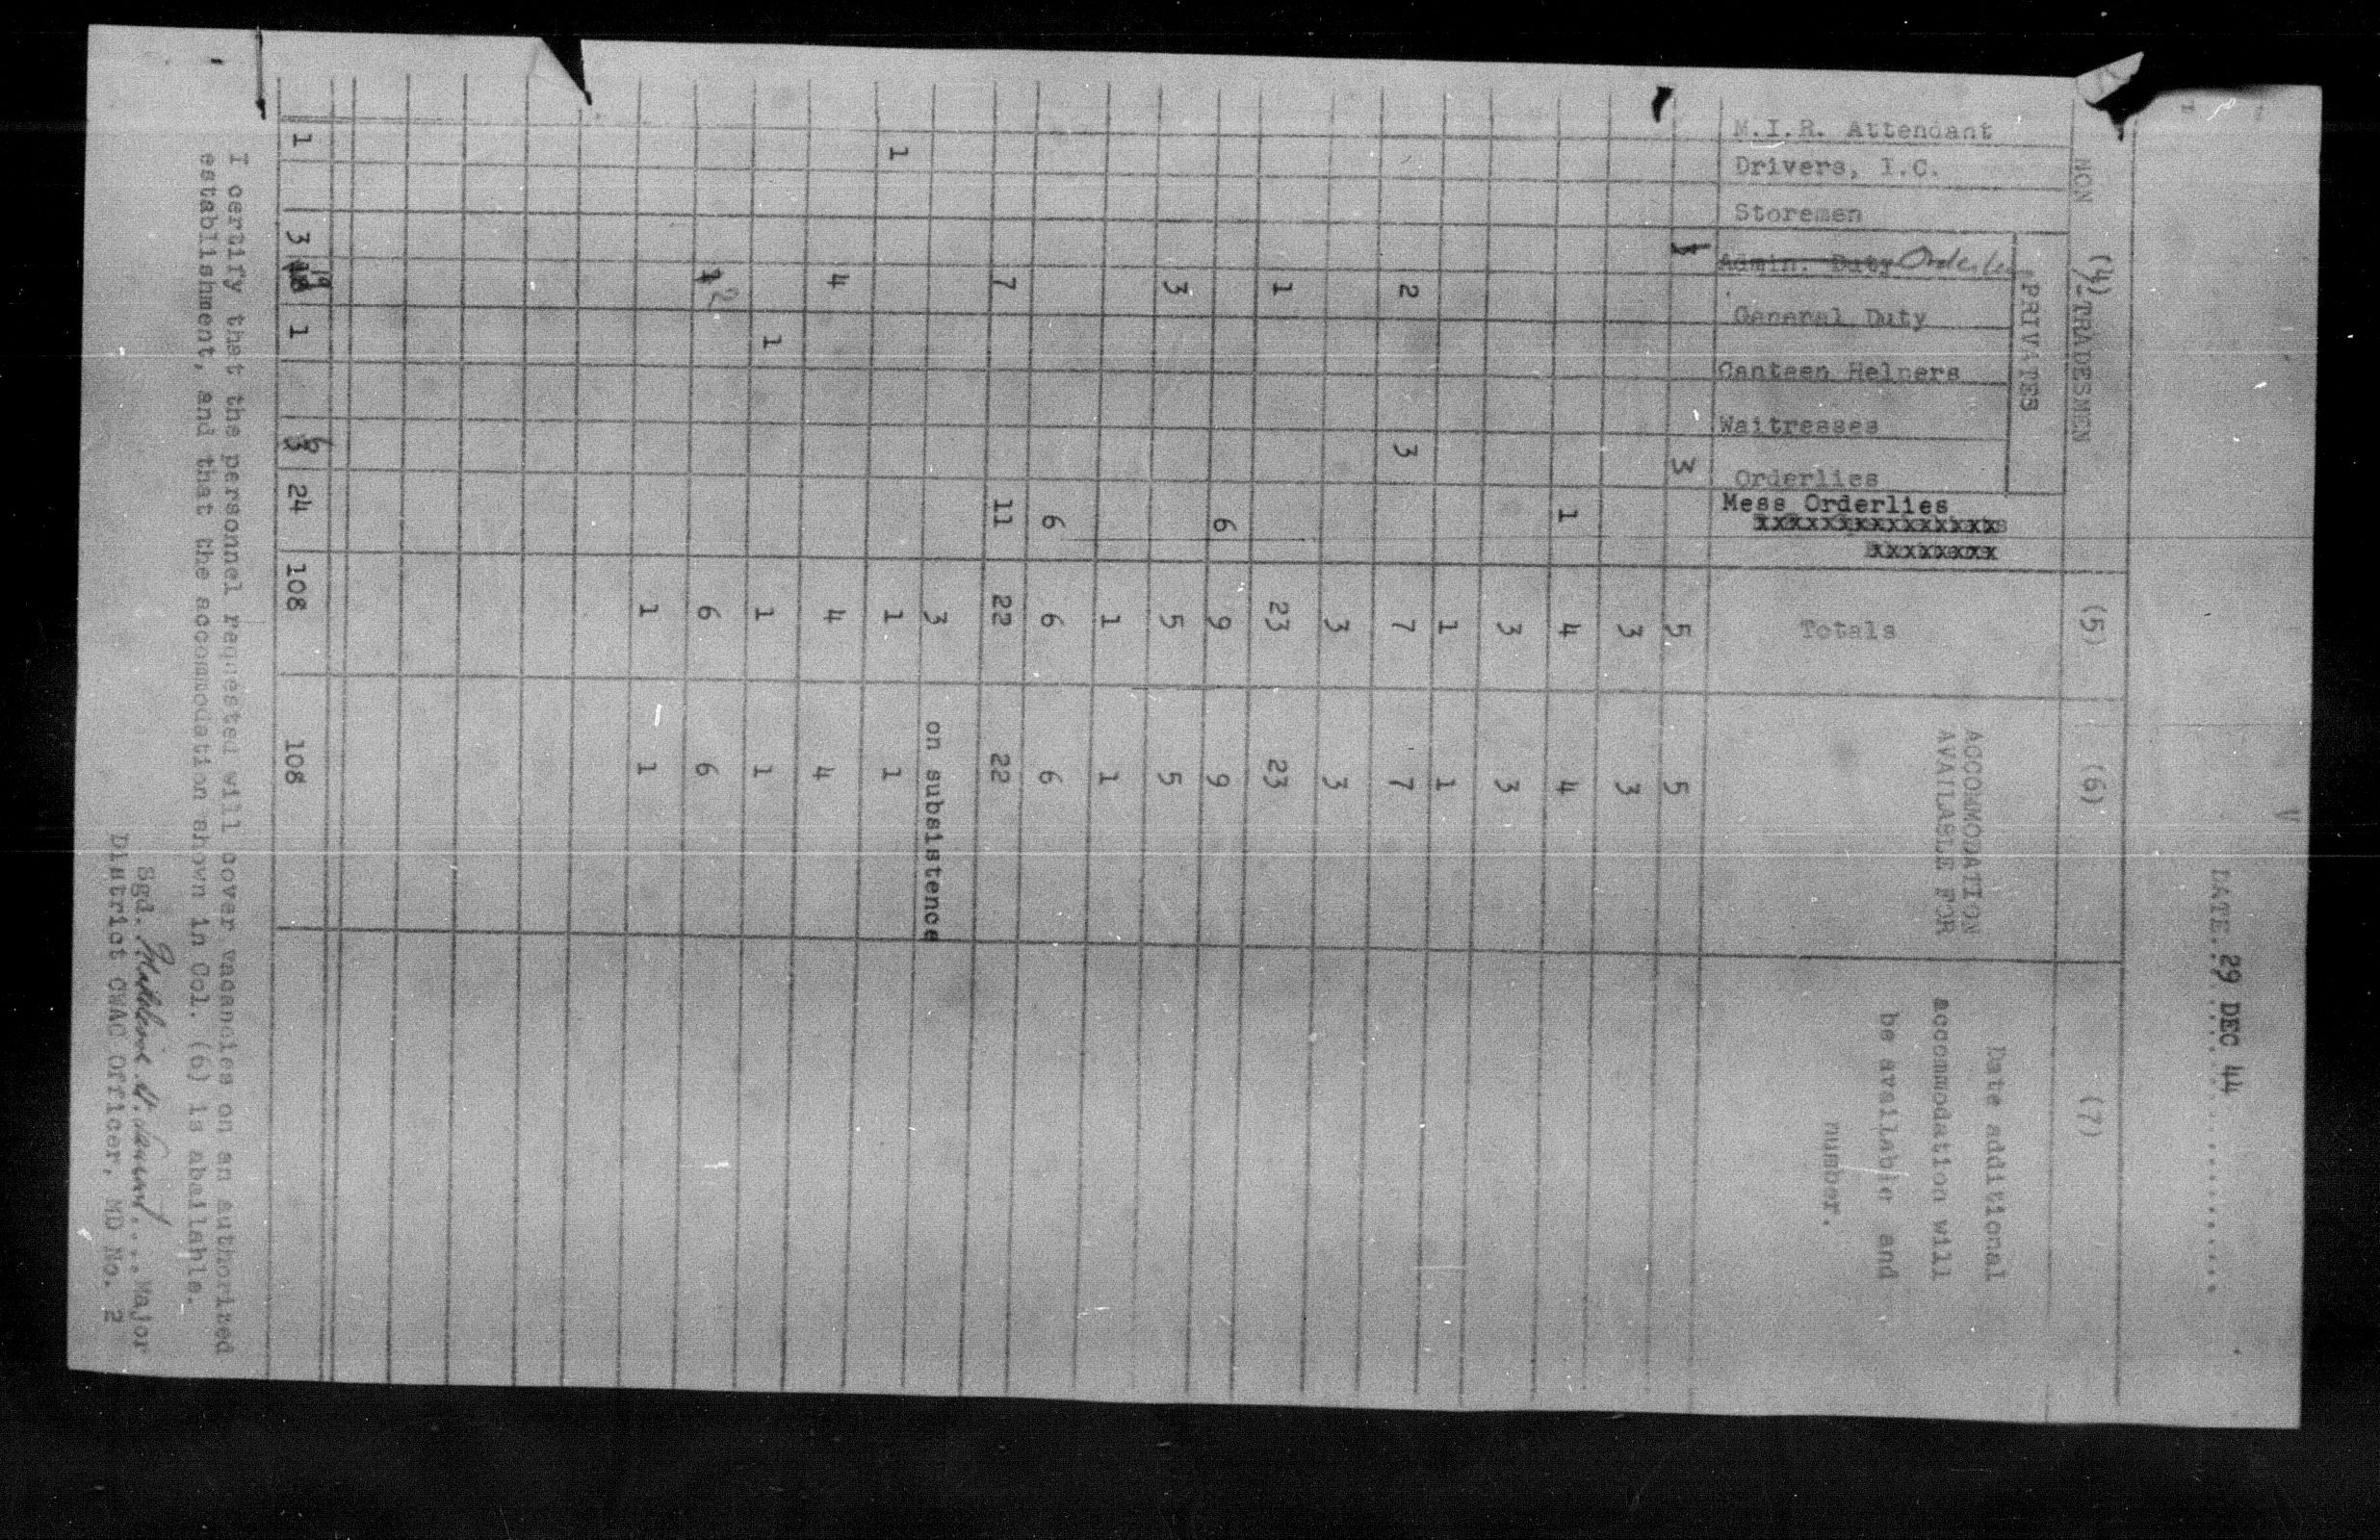 DATE..29 DEC 44
(4)
NON - TRADESMEN
(5)
(6)
(7)
PRIVATES
M.I.R. Attendant
Drivers, I.C.
Storemen
Admin. Duty Orderlies
General Duty
Canteen Helpers
Waitresses
Orderlies
Mess Orderlies
Totals
ACCOMMODATION
AVAILABLE FOR
Date additional
accommodation will
be available and
number.
1 3 5 5
3 3
1 4 4
3 3
1 1
2 3 7 7
3 3
1 23 23
6 9 9
3 5 5
1 1
6 6 6
7 11 22 22
3 on subsistence
1 1 1
4 4 4
1 1 1
1 2 6 6
1 1
1 3 19 1 6 24 108 108
I certify that the personnel requested will cover vacancies on an authorized
establishment, and that the accommodation shown in Col. (6) is abailable.
Sgd. .... Major
District CWAC Officer, MD No. 2